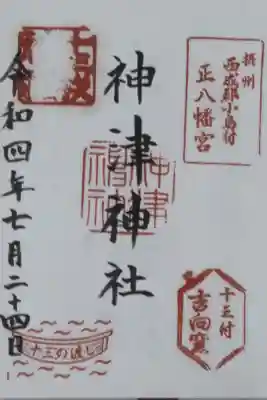 摂州
西成郡小島村
正八幡宮
神津神社
神津
神社
十三村
吉向窯
令和四年七月二十四日
十三の渡し